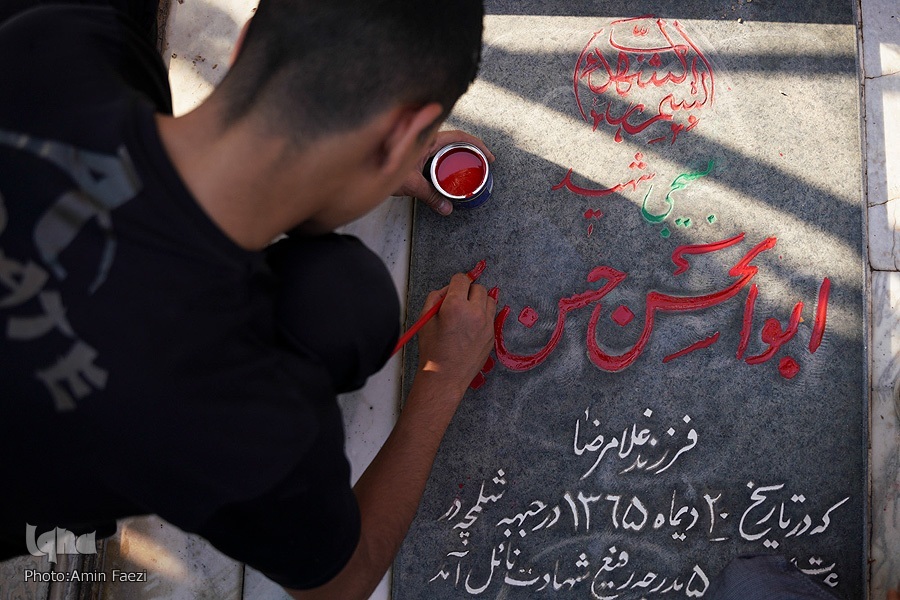 بسم رب الشهداء
بسیجی شهید
ابوالحسن حسن
فرزند غلامرضا
که در تاریخ ۲۰ دیماه ۱۳۶۵ در جبهه شلمچه در
۵ بدرجه رفیع شهادت نائل آمد
iqna
Photo:Amin Faezi